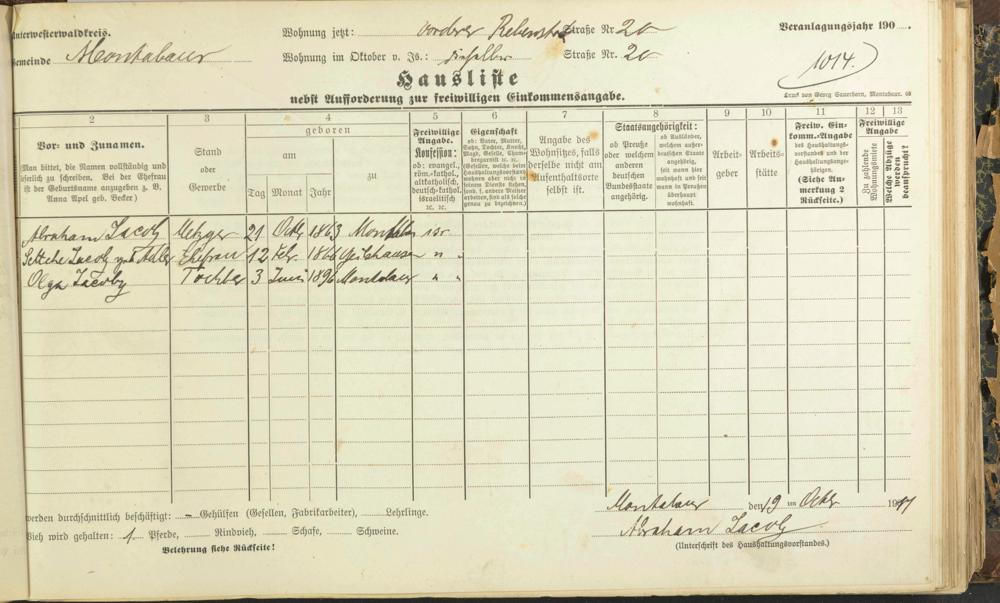 Unterwesterwaldkreis.
Wohnung jetzt: Vorderer Rebenstock Straße Nr. 20
Veranlagungsjahr 190
Gemeinde Montabaur
Wohnung im Oktober v. Js.: dieselbe Straße Nr. 20
1014.
Hausliste
Druck von Georg Sauerborn, Montabaur.
nebst Aufforderung zur freiwilligen Einkommensangabe.
2 3 4 5 6 7 8 9 10 11 12 13
Vor- und Zunamen.
(Man bittet, die Namen vollständig und
leserlich zu schreiben. Bei der Ehefrau
ist der Geburtsname anzugeben z. B.
Anna Apel geb. Becker.)
Stand
oder
Gewerbe
geboren
am
zu
Tag Monat Jahr
Freiwillige
Angabe.
Konfession:
ob: evangel.,
röm.-kathol.,
altkatholisch,
deutsch-kathol.
israelitisch
2c. 2c.
Eigenschaft
ob: Vater, Mutter,
Sohn, Tochter, Knecht,
Magd, Geselle, Cham-
bregarnist 2c. 2c.
(Gesellen, welche beim
Haushaltungsvorstand
wohnen oder nicht in
seinem Dienste stehen,
sond. f. andere Meister
arbeiten, sind als solche
genau zu bezeichnen.)
Angabe des
Wohnsitzes, falls
derselbe nicht am
Aufenthaltsorte
selbst ist.
Staatsangehörigkeit:
ob Preuße
oder welchem
anderen
deutschen
Bundesstaate
angehörig.
ob Ausländer,
welchem außer-
deutschen Staate
angehörig,
seit wann hier
wohnhaft und seit
wann in Preußen
überhaupt
wohnhaft.
Arbeit-
geber
Arbeits-
stätte
Freiw. Ein-
komm.-Angabe
des Haushaltungs-
vorstandes und der
Haushaltungsange-
hörigen.
(Siehe An-
merkung 2
Rückseite.)
Freiwillige
Angabe
Zu zahlende
Wohnungsmiete
Welche Abzüge
werden
beansprucht?
Abraham Jacoby Metzger 21 Oktb 1863 Montabr isr.
Settche Jacoby geb Adler Ehefrau 12 Febr. 1866 " "
Olga Jacoby Tochter 3 Juni 1896 Montabaur " "
werden durchschnittlich beschäftigt: – Gehülfen (Gesellen, Fabrikarbeiter), Lehrlinge.
Vieh wird gehalten: 1. Pferde, Rindvieh, Schafe, Schweine.
Belehrung siehe Rückseite!
Montabaur den 19 im Oktb 1911
Abraham Jacoby
(Unterschrift des Haushaltungsvorstandes.)